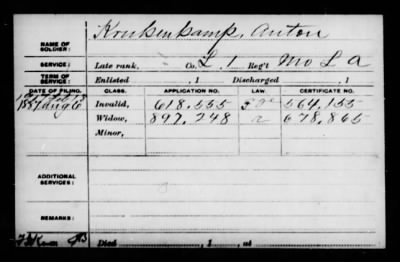 NAME OF SOLDIER: Krukenkamp, Anton
SERVICE: Late rank, Co. L. 1 Reg't Mo L A
TERM OF SERVICE: Enlisted , 1 Discharged , 1
DATE OF FILING. CLASS. APPLICATION NO. LAW. CERTIFICATE NO.
1887 Aug 6 Invalid, 618.535 564,155
Widow, 897,248 678,865
Minor,
ADDITIONAL SERVICES:
REMARKS:
Died , 1 , at